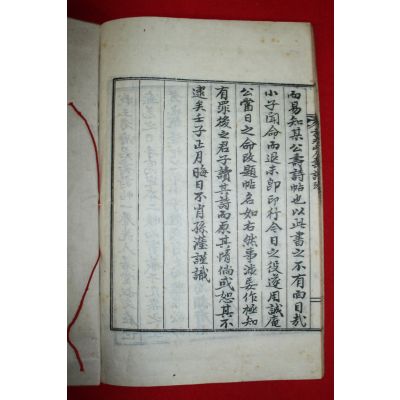 而易知某公壽詩帖也以此書之不有面目哉
小子聞命而退未卽印行今日之役遂用誠庵
公當日之命改題帖名如右然事涉委作極知
有罪後之君子讀其詩而原其情倘或恕其不
逮矣壬子正月晦日不肖孫 謹識